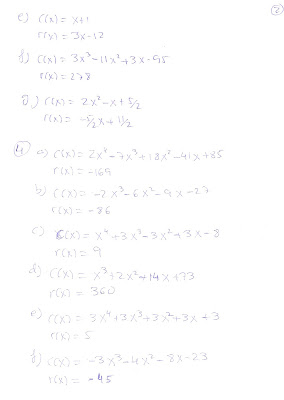 ②
e) C(x) = x+1
r(x) = 3x-12
f) C(x) = 3x³-11x²+3x-95
r(x) = 278
g) C(x) = 2x²-x+5/2
r(x) = -5/2x+11/2
④ a) C(x) = 2x⁴-7x³+18x²-41x+85
r(x) = -169
b) C(x) = -2x³-6x²-9x-27
r(x) = -86
c) C(x) = x⁴+3x³-3x²+3x-8
r(x) = 9
d) C(x) = x³+2x²+14x+73
r(x) = 360
e) C(x) = 3x⁴+3x³+3x²+3x+3
r(x) = 5
f) C(x) = -3x³-4x²-8x-23
r(x) = -45